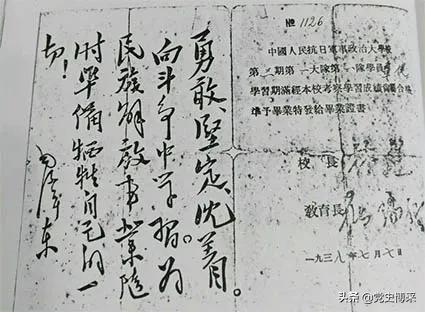 勇敢、堅定、沈着。
向斗争中学習。为
民族解放事業随
时準備牺牲自己的一
切!
毛泽东
№ 1126
中國人民抗日軍事政治大學校
第期第一大隊第一隊學員
學習期滿經本校考察學習成績合格
準予畢業特發給畢業證書
校長
教育長
一九三八年七月七日
头条 @党史博采